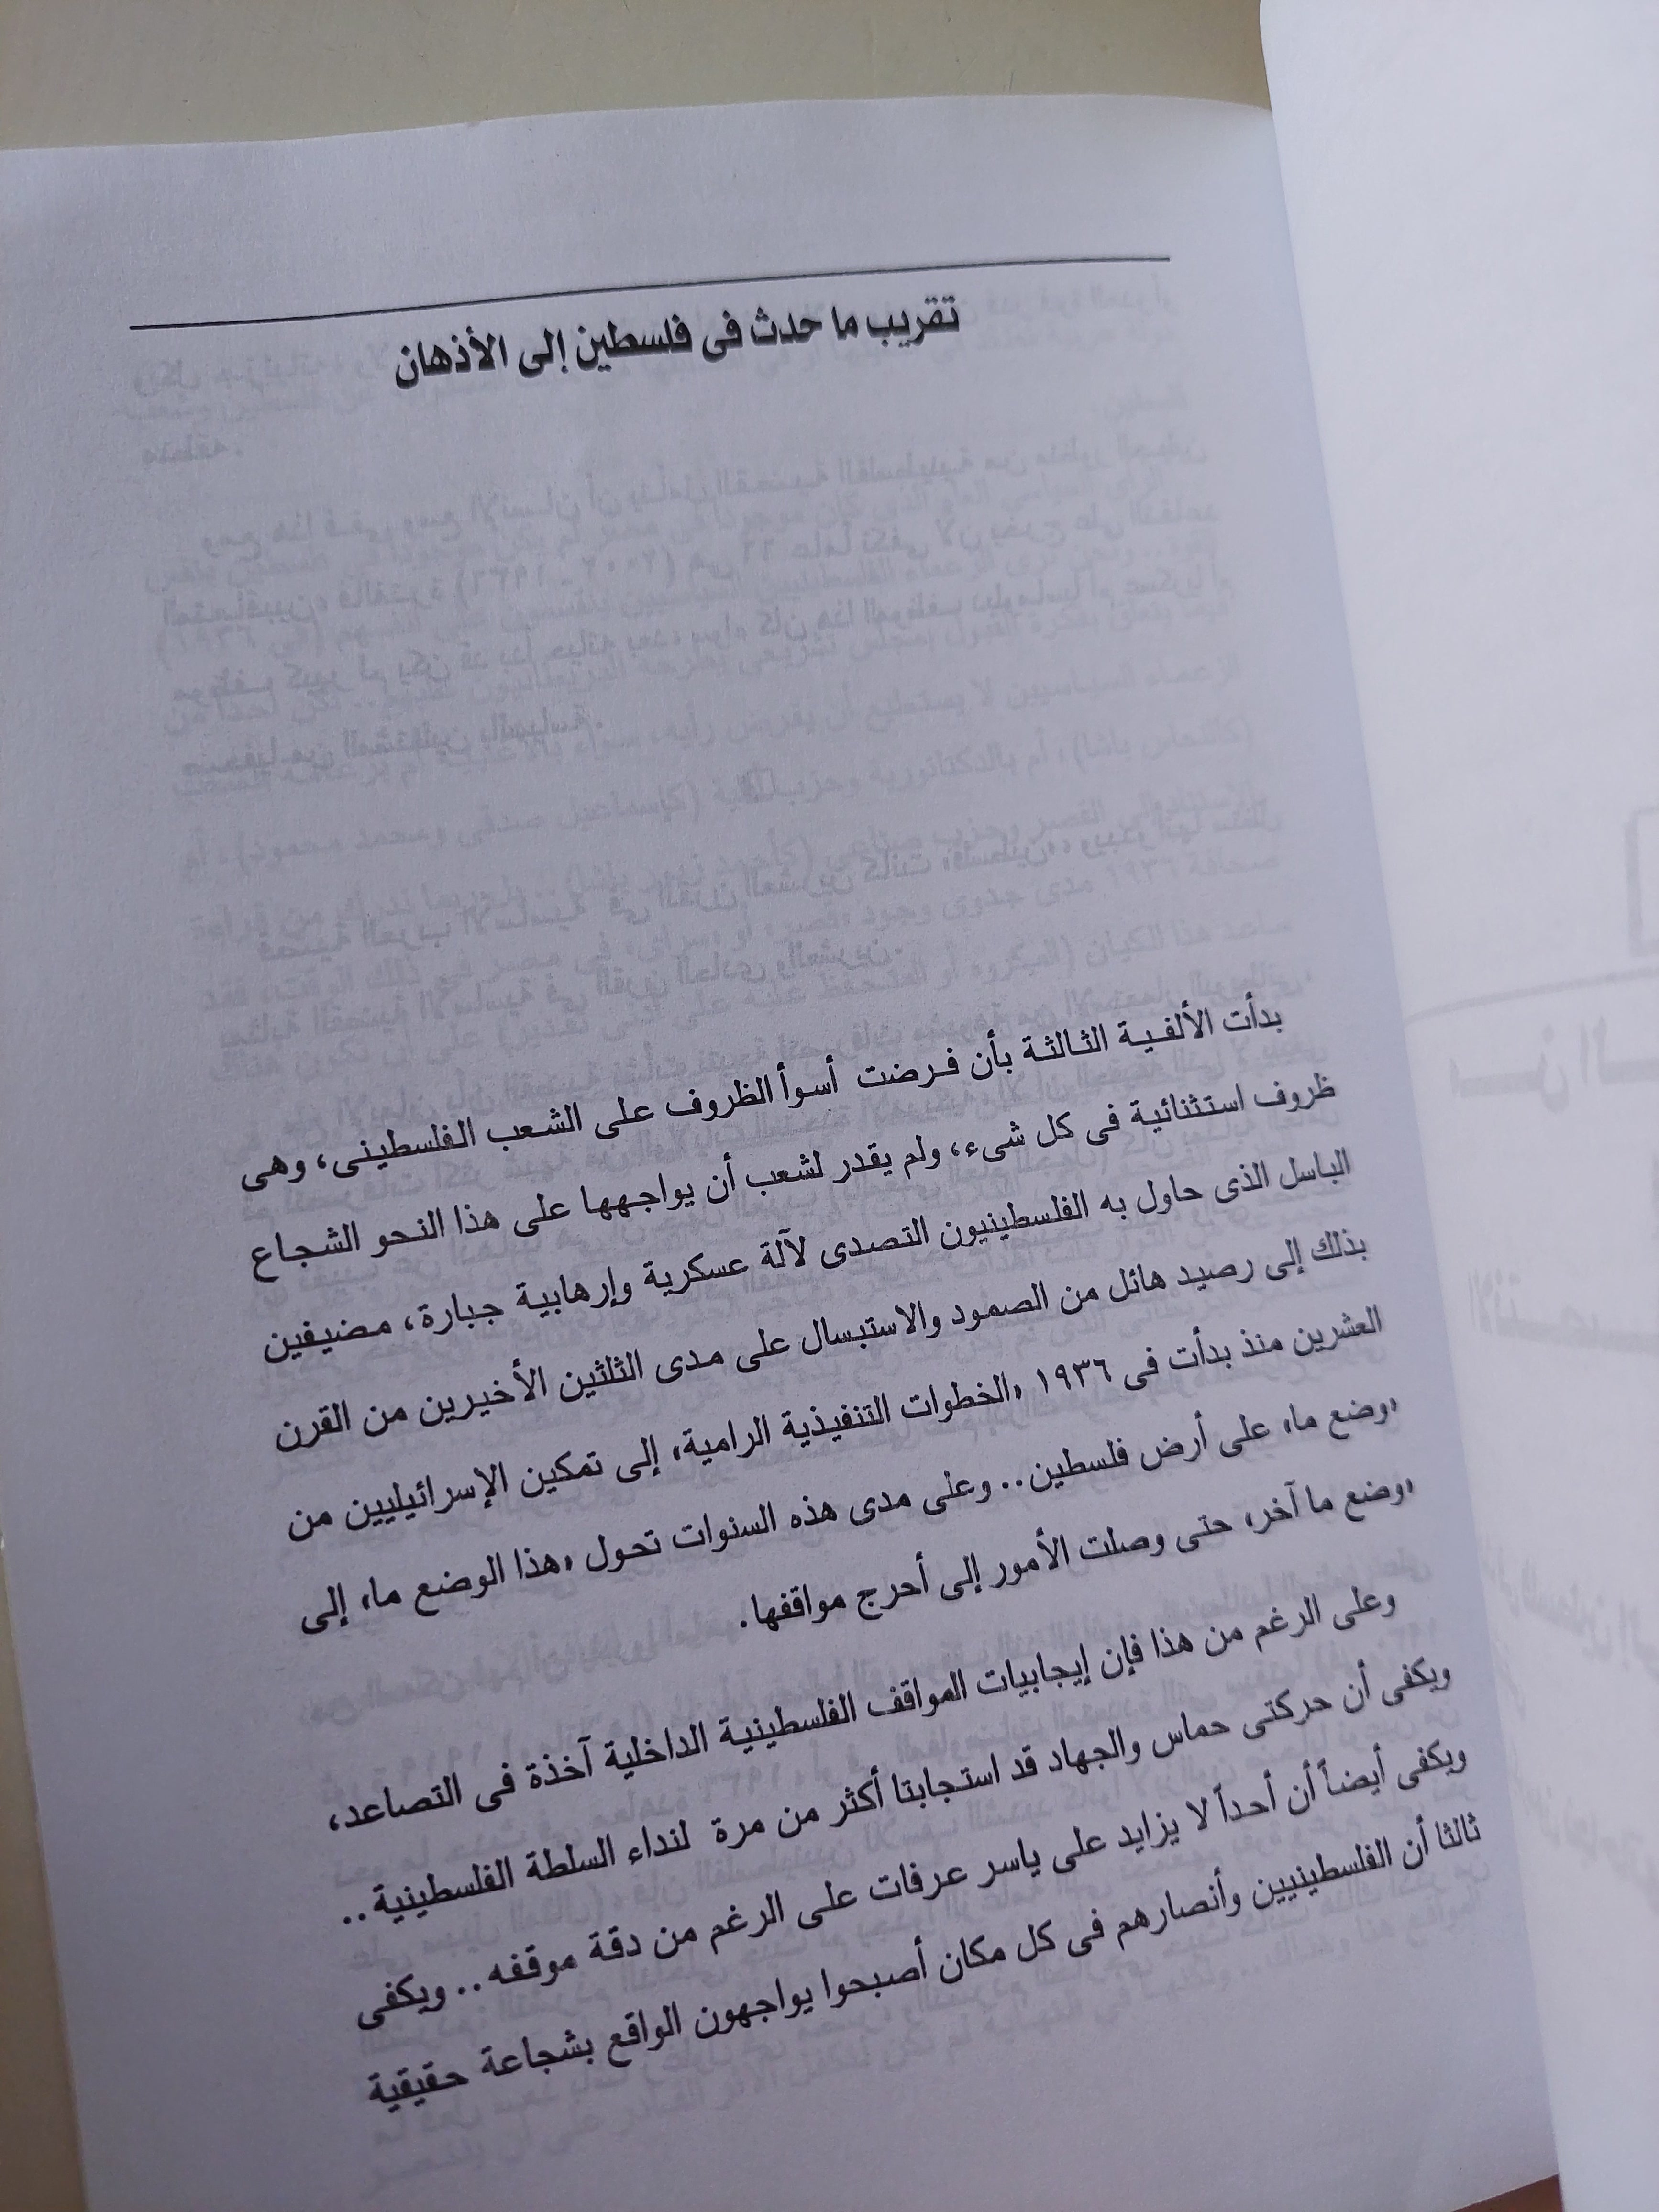 تقريب ما حدث فى فلسطين إلى الأذهان
بدأت الألفية الثالثة بأن فرضت أسوأ الظروف على الشعب الفلسطينى، وهى
ظروف استثنائية فى كل شىء، ولم يقدر لشعب أن يواجهها على هذا النحو الشجاع
الباسل الذى حاول به الفلسطينيون التصدى لآلة عسكرية وإرهابية جبارة، مضيفين
بذلك إلى رصيد هائل من الصمود والاستبسال على مدى الثلثين الأخيرين من القرن
العشرين منذ بدأت فى ١٩٣٦ «الخطوات التنفيذية الرامية» إلى تمكين الإسرائيليين من
«وضع ما» على أرض فلسطين.. وعلى مدى هذه السنوات تحول «هذا الوضع ما» إلى
«وضع ما آخر» حتى وصلت الأمور إلى أحرج مواقفها.
وعلى الرغم من هذا فإن إيجابيات المواقف الفلسطينية الداخلية آخذة فى التصاعد،
ويكفى أن حركتى حماس والجهاد قد استجابتا أكثر من مرة لنداء السلطة الفلسطينية..
ويكفى أيضاً أن أحداً لا يزايد على ياسر عرفات على الرغم من دقة موقفه.. ويكفى
ثالثا أن الفلسطينيين وأنصارهم فى كل مكان أصبحوا يواجهون الواقع بشجاعة حقيقية